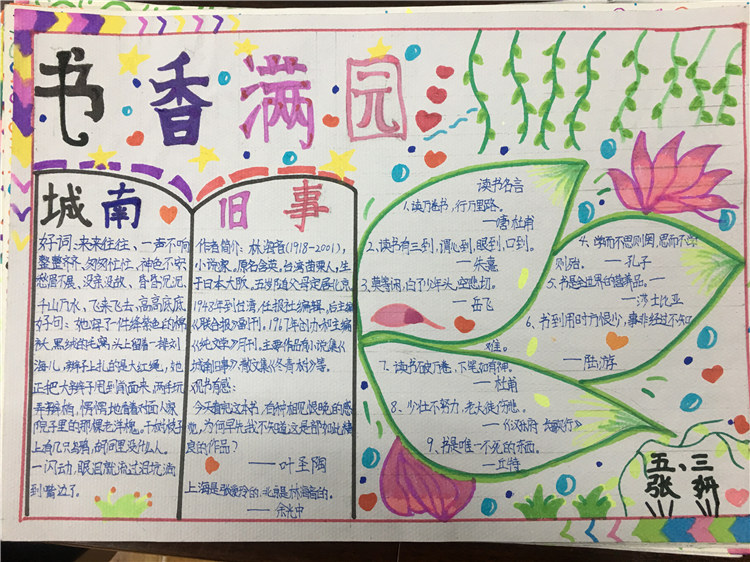 书香满园
城南
旧事
好词:来来往往、一声不响
整整齐齐、匆匆忙忙、神色不安
愁眉不展、没亲没故、昏昏沉沉、
千山万水、飞来飞去、高高底底
好句:她穿了一件绛紫色的棉
袄,黑绒的毛窝,头上留着一排刘
海儿,辫子上扎的是大红绳,她
正把大辫子甩到前面来,两手玩
弄辫梢,愣愣地看着对面人家
院子里的那棵老洋槐。干树枝子
上有几只乌鸦,胡同里没什么人。
一闪动,眼泪就流过泪坑淌
到嘴边了。
作者简介:林海音(1918-2001),
小说家。原名含英。台湾苗栗人,生
于日本大阪,五岁随父母定居北京,
1948年到台湾,任报社编辑,后主编
《联合报》副刊,1967年创办和主编
《纯文学》月刊,主要作品有小说集《
城南旧事》散文集《冬青树》等。
观书有感:
今天看完这本书,有种相见恨晚的感
觉,为何早先我不知道这是部如此精
良的作品?
——叶圣陶
上海是张爱玲的,北京是林海音的。
——余光中
读书名言
1、读万卷书,行万里路。
——唐杜甫
2、读书有三到,谓心到,眼到,口到。
——朱熹
3、莫等闲,白了少年头,空悲切。
——岳飞
4、学而不思则罔,思而不学
则殆。——孔子
5、书是全世界的营养品。
——莎士比亚
6、书到用时方恨少,事非经过不知
难。
——陆游
7、读书破万卷,下笔如有神。
——杜甫
8、少壮不努力,老大徒伤悲。
——《汉乐府 长歌行》
9、书是唯一不死的东西。
——丘特
五、三
张